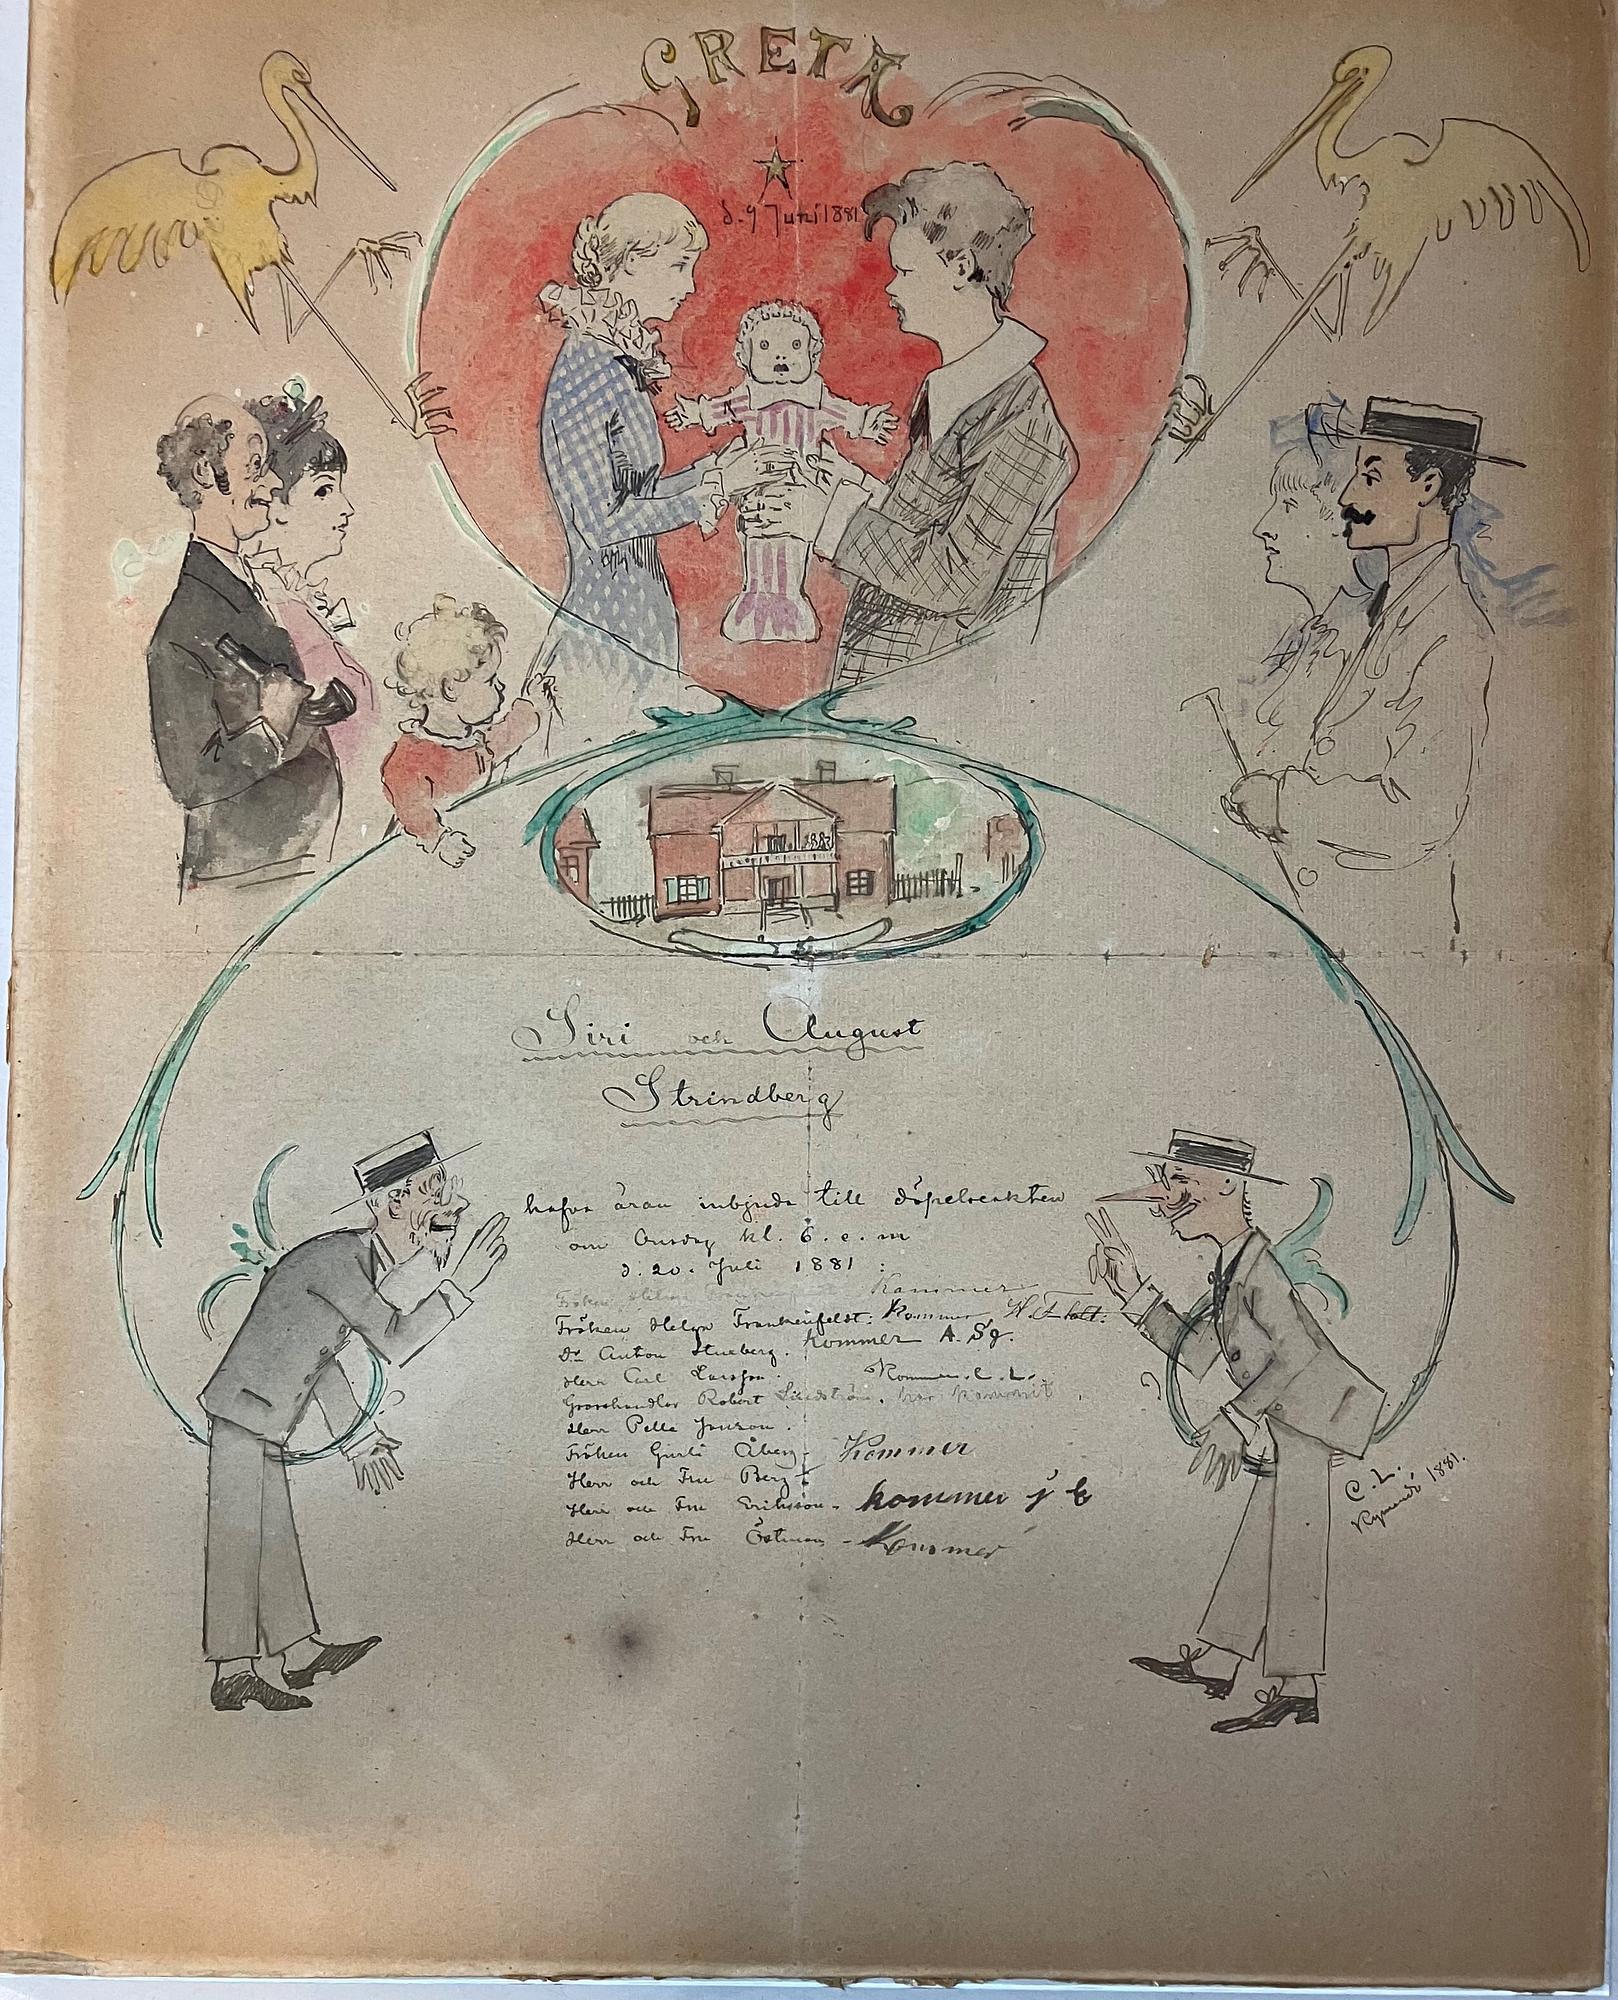 GRETA
d. 9 Juni 1881
Siri och August
Strindberg
hafva äran inbjuda till döpelseakten
om Onsdag kl. 6. e. m
d. 20. Juli 1881 :
Fröken Kommer
Fröken Helga Frankenfeldt: Kommer
Dr Anton Stuxberg. Kommer A. Sg.
Herr Carl Larsson. Kommer. C. L.
Grosshandlar Robert Lindström. har kommit
Herr Pelle Janson.
Fröken Gurli Åberg - Kommer
Herr och Fru Berg
Herr och Fru Eriksson - kommer
Herr och Fru Östman - Kommer
C. L.
Kymendö 1881.